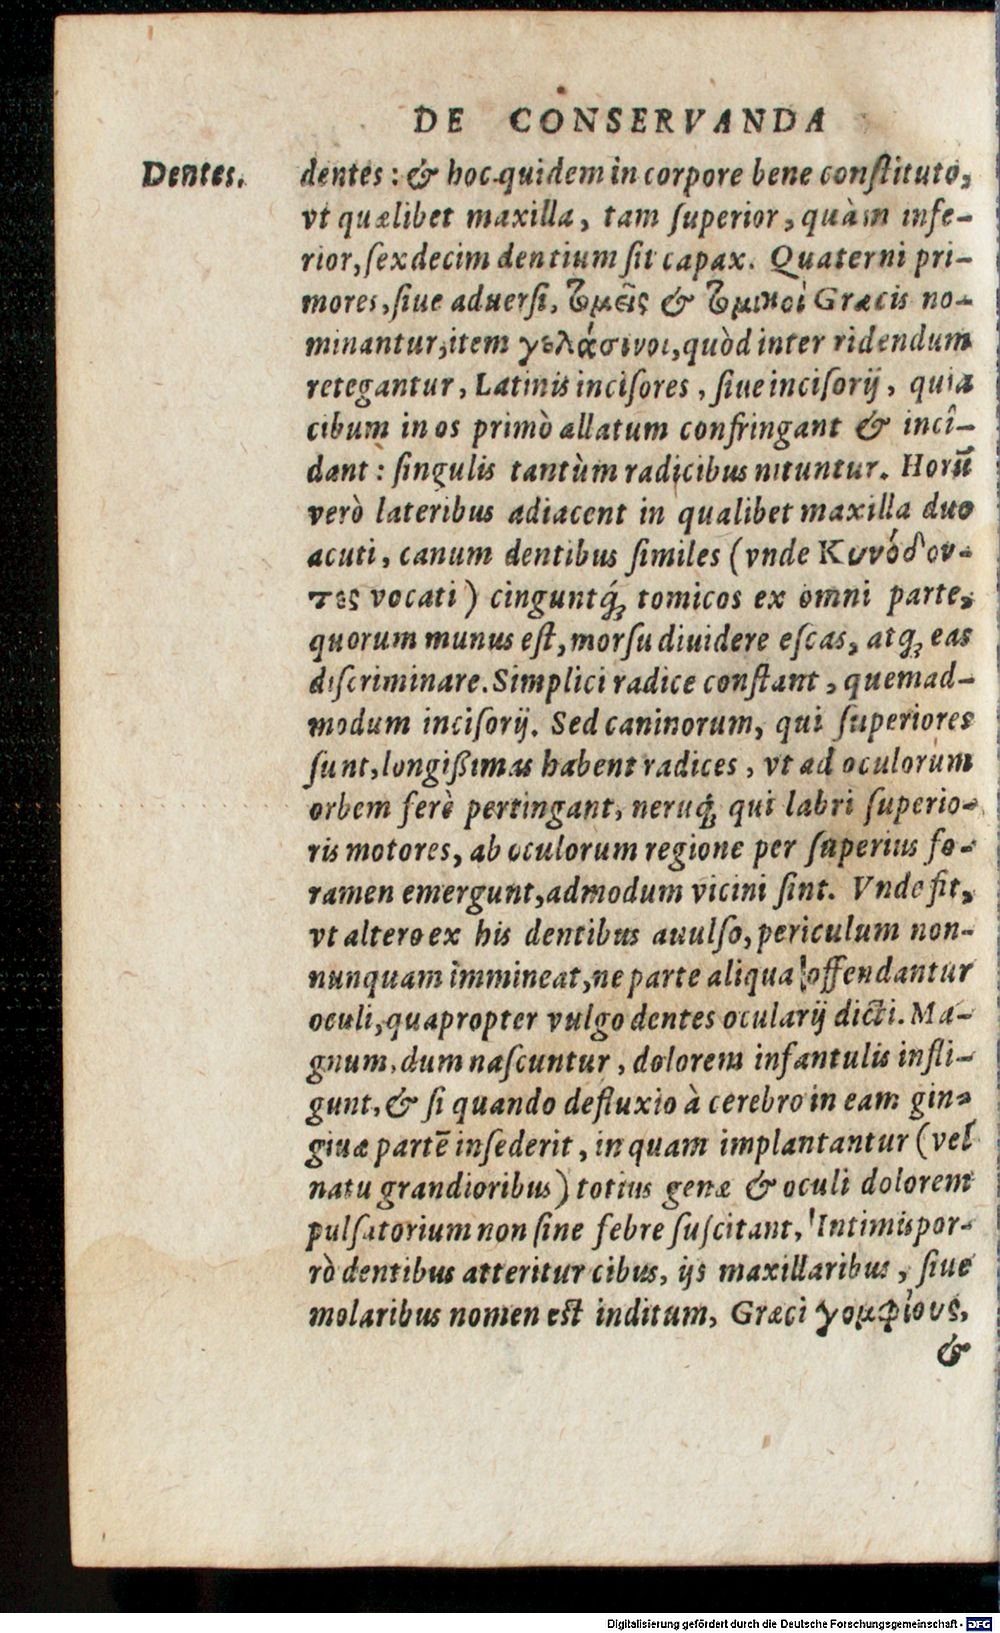 DE CONSERVANDA
Dentes.
dentes: & hoc quidem in corpore bene conſtituto,
vt quælibet maxilla, tam ſuperior, quàm infe-
rior, ſexdecim dentium ſit capax. Quaterni pri-
mores, ſiue aduerſi, τομεῖς & τομικοὶ Græcis no-
minantur, item γελάσινοι, quòd inter ridendum
retegantur, Latinis inciſores, ſiue inciſorij, quia
cibum in os primò allatum confringant & incî-
dant: ſingulis tantùm radicibus nituntur. Horū
verò lateribus adiacent in qualibet maxilla duo
acuti, canum dentibus ſimiles (vnde Κυνόδον-
τες vocati) cinguntq́ꝫ tomicos ex omni parte,
quorum munus eſt, morſu diuidere eſcas, atqꝫ eas
diſcriminare. Simplici radice conſtant, quemad-
modum inciſorij. Sed caninorum, qui ſuperiores
ſunt, longißimas habent radices, vt ad oculorum
orbem ferè pertingant, neruiq́ꝫ qui labri ſuperio-
ris motores, ab oculorum regione per ſuperius fo-
ramen emergunt, admodum vicini ſint. Vnde fit,
vt altero ex his dentibus auulſo, periculum non-
nunquam immineat, ne parte aliqua offendantur
oculi, quapropter vulgo dentes ocularij dicti. Ma-
gnum, dum naſcuntur, dolorem infantulis infli-
gunt, & ſi quando defluxio à cerebro in eam gin-
giuæ partē inſederit, in quam implantantur (vel
natu grandioribus) totius genæ & oculi dolorem
pulſatorium non ſine febre ſuſcitant, Intimis por-
rò dentibus atteritur cibus, ijs maxillaribus, ſiue
molaribus nomen est inditum, Græci γομφίους,
&
Digitalisierung gefördert durch die Deutsche Forschungsgemeinschaft - DFG